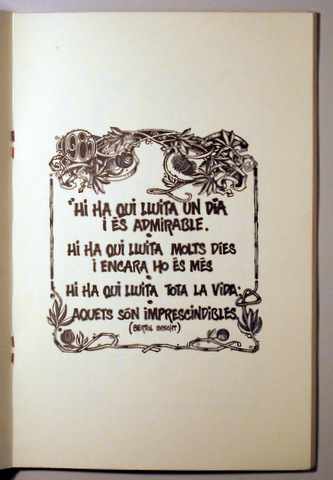 "HI HA QUI LLUITA UN DIA
I ÉS ADMIRABLE.
HI HA QUI LLUITA MOLTS DIES
I ENCARA HO ÉS MÉS
HI HA QUI LLUITA TOTA LA VIDA:
AQUETS SÓN IMPRESCINDIBLES
(BERTOL BRECHT)